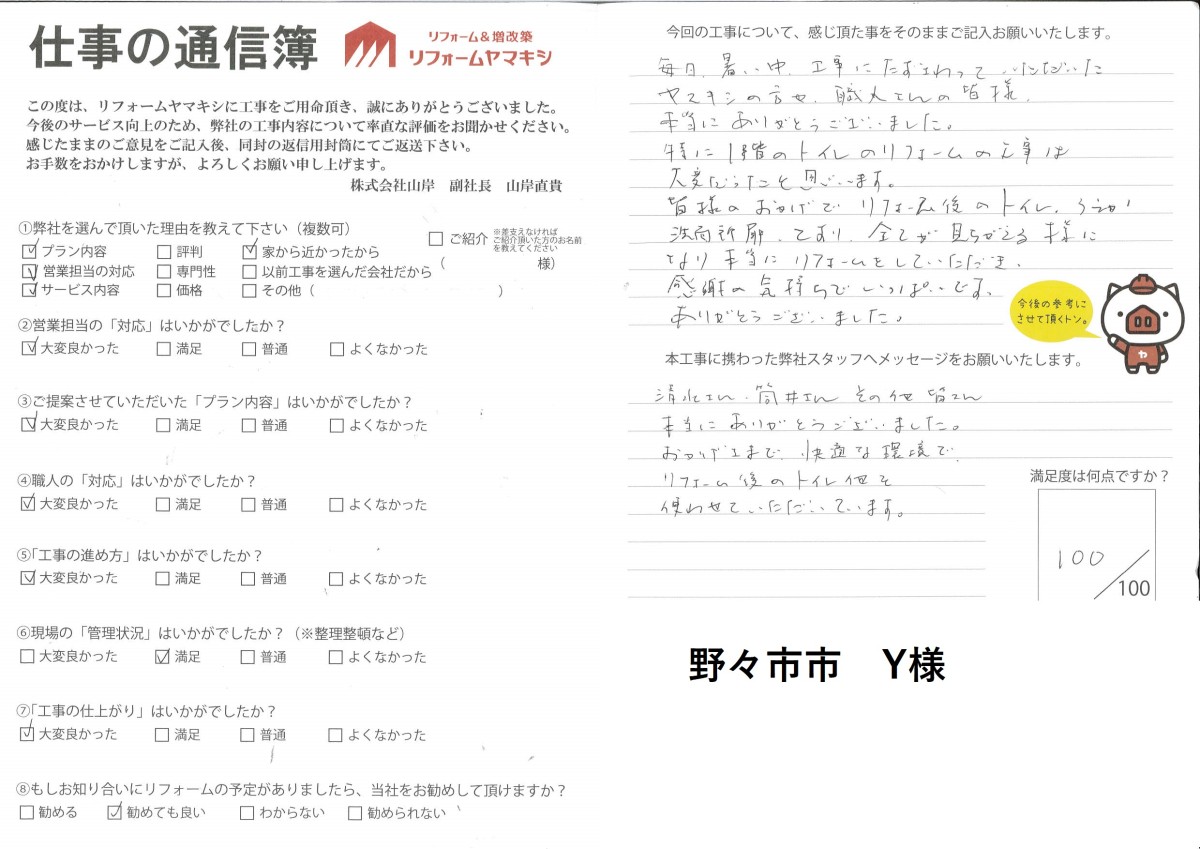 仕事の通信簿
リフォーム&増改築
リフォームヤマキシ
この度は、リフォームヤマキシに工事をご用命頂き、誠にありがとうございました。
今後のサービス向上のため、弊社の工事内容について率直な評価をお聞かせください。
感じたままのご意見をご記入後、同封の返信用封筒にてご返送下さい。
お手数をおかけしますが、よろしくお願い申し上げます。
株式会社山岸 副社長 山岸直貴
①弊社を選んで頂いた理由を教えて下さい（複数可）
☑プラン内容 □評判 ☑家から近かったから □ご紹介 ※差支えなければ
ご紹介頂いた方のお名前
を教えてください
☑営業担当の対応 □専門性 □以前工事を選んだ会社だから （ 様）
☑サービス内容 □価格 □その他（ ）
②営業担当の「対応」はいかがでしたか？
☑大変良かった □満足 □普通 □よくなかった
③ご提案させていただいた「プラン内容」はいかがでしたか？
☑大変良かった □満足 □普通 □よくなかった
④職人の「対応」はいかがでしたか？
☑大変良かった □満足 □普通 □よくなかった
⑤「工事の進め方」はいかがでしたか？
☑大変良かった □満足 □普通 □よくなかった
⑥現場の「管理状況」はいかがでしたか？（※整理整頓など）
□大変良かった ☑満足 □普通 □よくなかった
⑦「工事の仕上がり」はいかがでしたか？
☑大変良かった □満足 □普通 □よくなかった
⑧もしお知り合いにリフォームの予定がありましたら、当社をお勧めして頂けますか？
□勧める ☑勧めても良い □わからない □勧められない
今回の工事について、感じ頂た事をそのままご記入お願いいたします。
毎日、暑い中、工事にたずさわっていただいた
ヤマキシの方や、職人さんの皆様、
本当にありがとうございました。
特に1階のトイレのリフォームの工事は
大変だったと思います。
皆様のおかげでリフォーム後のトイレ、
洗面所、全てが見ちがえる様に
なり本当にリフォームをしていただき、
感謝の気持ちでいっぱいです。
ありがとうございました。
今後の参考に
させて頂くトン。
ヤ
本工事に携わった弊社スタッフへメッセージをお願いいたします。
清水さん、筒井さん その他 皆さん
本当にありがとうございました。
おかげさまで、快適な環境で、
リフォーム後のトイレ他を
使わせていただいています。
満足度は何点ですか？
100／100
野々市市 Y様